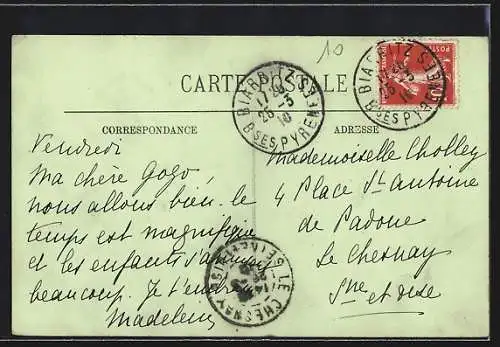 10
CARTE POSTALE
BIARRITZ
17 20
25 -3
10
BSES PYRENEES
BIARRITZ
25 -3
10
BSES PYRENEES
CORRESPONDANCE
ADRESSE
Vendredi
Ma chère Gogo,
nous allons bien. le
temps est magnifique
et les enfants s'amusent
beaucoup. Je t'embrasse
Madeleine
Mademoiselle Cholley
4 Place St Antoine
de Padoue
Le Chesnay
Sne et Oise
LE CHESNAY